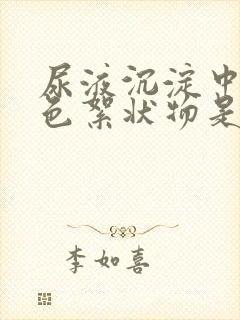 尿液沉淀中
色絮状物是
李如喜